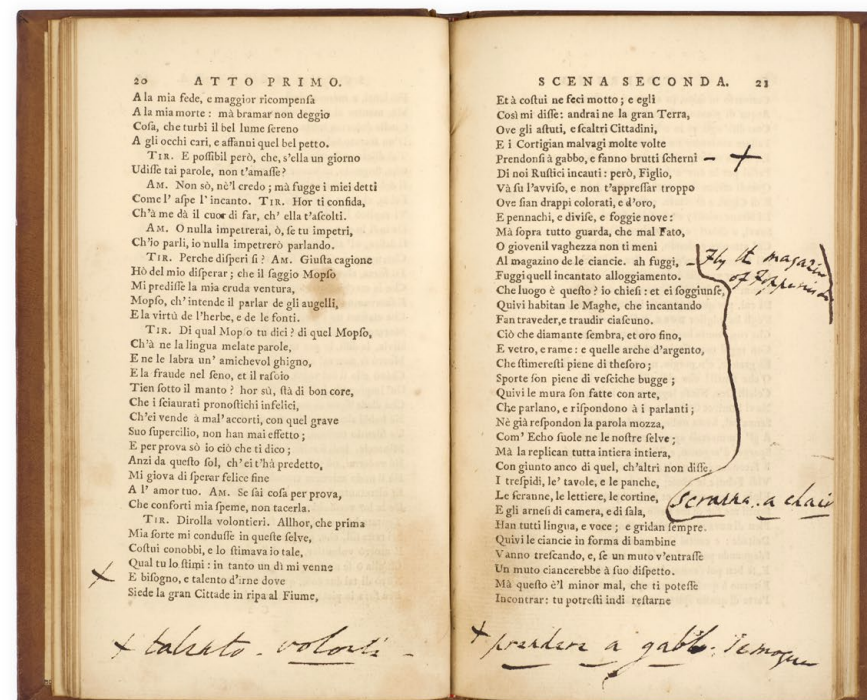 20 ATTO PRIMO.
A la mia fede, e maggior ricompenſa
A la mia morte: mà bramar non deggio
Coſa, che turbi il bel lume ſereno
A gli occhi cari, e affanni quel bel petto.
TIR. E poſſibil però, che, s'ella un giorno
Udiſſe tai parole, non t'amaſſe?
AM. Non sò, nè'l credo; mà fugge i miei detti
Come l' aſpe l' incanto. TIR. Hor ti confida,
Ch'à me dà il cuor di far, ch' ella t'aſcolti.
AM. O nulla impetrerai, ò, ſe tu impetri,
Ch'io parli, io nulla impetrerò parlando.
TIR. Perche diſperi ſi? AM. Giuſta cagione
Hò del mio diſperar; che il ſaggio Mopſo
Mi prediſſe la mia cruda ventura,
Mopſo, ch' intende il parlar de gli augelli,
E la virtù de l'herbe, e de le fonti.
TIR. Di qual Mopſo tu dici? di quel Mopſo,
Ch'à ne la lingua melate parole,
E ne le labra un' amichevol ghigno,
E la fraude nel ſeno, et il raſoio
Tien ſotto il manto? hor sù, ſtà di bon core,
Che i ſciaurati pronoſtichi infelici,
Ch'ei vende à mal' accorti, con quel grave
Suo ſupercilio, non han mai effetto;
E per prova sò io ciò che ti dico;
Anzi da queſto ſol, ch' ei t'hà predetto,
Mi giova di ſperar felice fine
A l' amor tuo. AM. Se ſai coſa per prova,
Che conforti mia ſpeme, non tacerla.
TIR. Dirolla volontieri. Allhor, che prima
Mia ſorte mi conduſſe in queſte ſelve,
Coſtui conobbi, e lo ſtimava io tale,
Qual tu lo ſtimi: in tanto un dì mi venne
+ E biſogno, e talento d'irne dove
Siede la gran Cittade in ripa al Fiume,
+ talento -
SCENA SECONDA. 21
Et à coſtui ne feci motto; e egli
Così mi diſſe: andrai ne la gran Terra,
Ove gli aſtuti, e ſcaltri Cittadini,
E i Cortigian malvagi molte volte
Prendonſi à gabbo, e fanno brutti ſcherni - +
Di noi Ruſtici incauti: però, Figlio,
Và ſu l'avviſo, e non t'appreſſar troppo
Ove ſian drappi colorati, e d'oro,
E pennachi, e diviſe, e foggie nove:
Mà ſopra tutto guarda, che mal Fato,
O giovenil vaghezza non ti meni
Al magazino de le ciancie. ah fuggi, -
Fly the magazin
of
Fuggi quell incantato alloggiamento.
Che luogo è queſto? io chieſi: et ei ſoggiunſe,
Quivi habitan le Maghe, che incantando
Fan traveder, e traudir ciaſcuno.
Ciò che diamante ſembra, et oro fino,
E vetro, e rame: e quelle arche d'argento,
Che ſtimereſti piene di theſoro;
Sporte ſon piene di veſciche bugge;
Quivi le mura ſon fatte con arte,
Che parlano, e riſpondono à i parlanti;
Nè già reſpondon la parola mozza,
Com' Echo ſuole ne le noſtre ſelve;
Mà la replican tutta intiera intiera,
Con giunto anco di quel, ch'altri non diſſe.
I treſpidi, le' tavole, e le panche,
Le ſcranne, le lettiere, le cortine,
scranna. a chair
E gli arneſi di camera, e di ſala,
Han tutti lingua, e voce; e gridan ſempre.
Quivi le ciancie in forma di bambine
Vanno treſcando, e, ſe un muto v'entraſſe
Un muto ciancerebbe à ſuo diſpetto.
Mà queſto è'l minor mal, che ti poteſſe
Incontrar: tu potreſti indi reſtarne
+ prendere a gabbo.